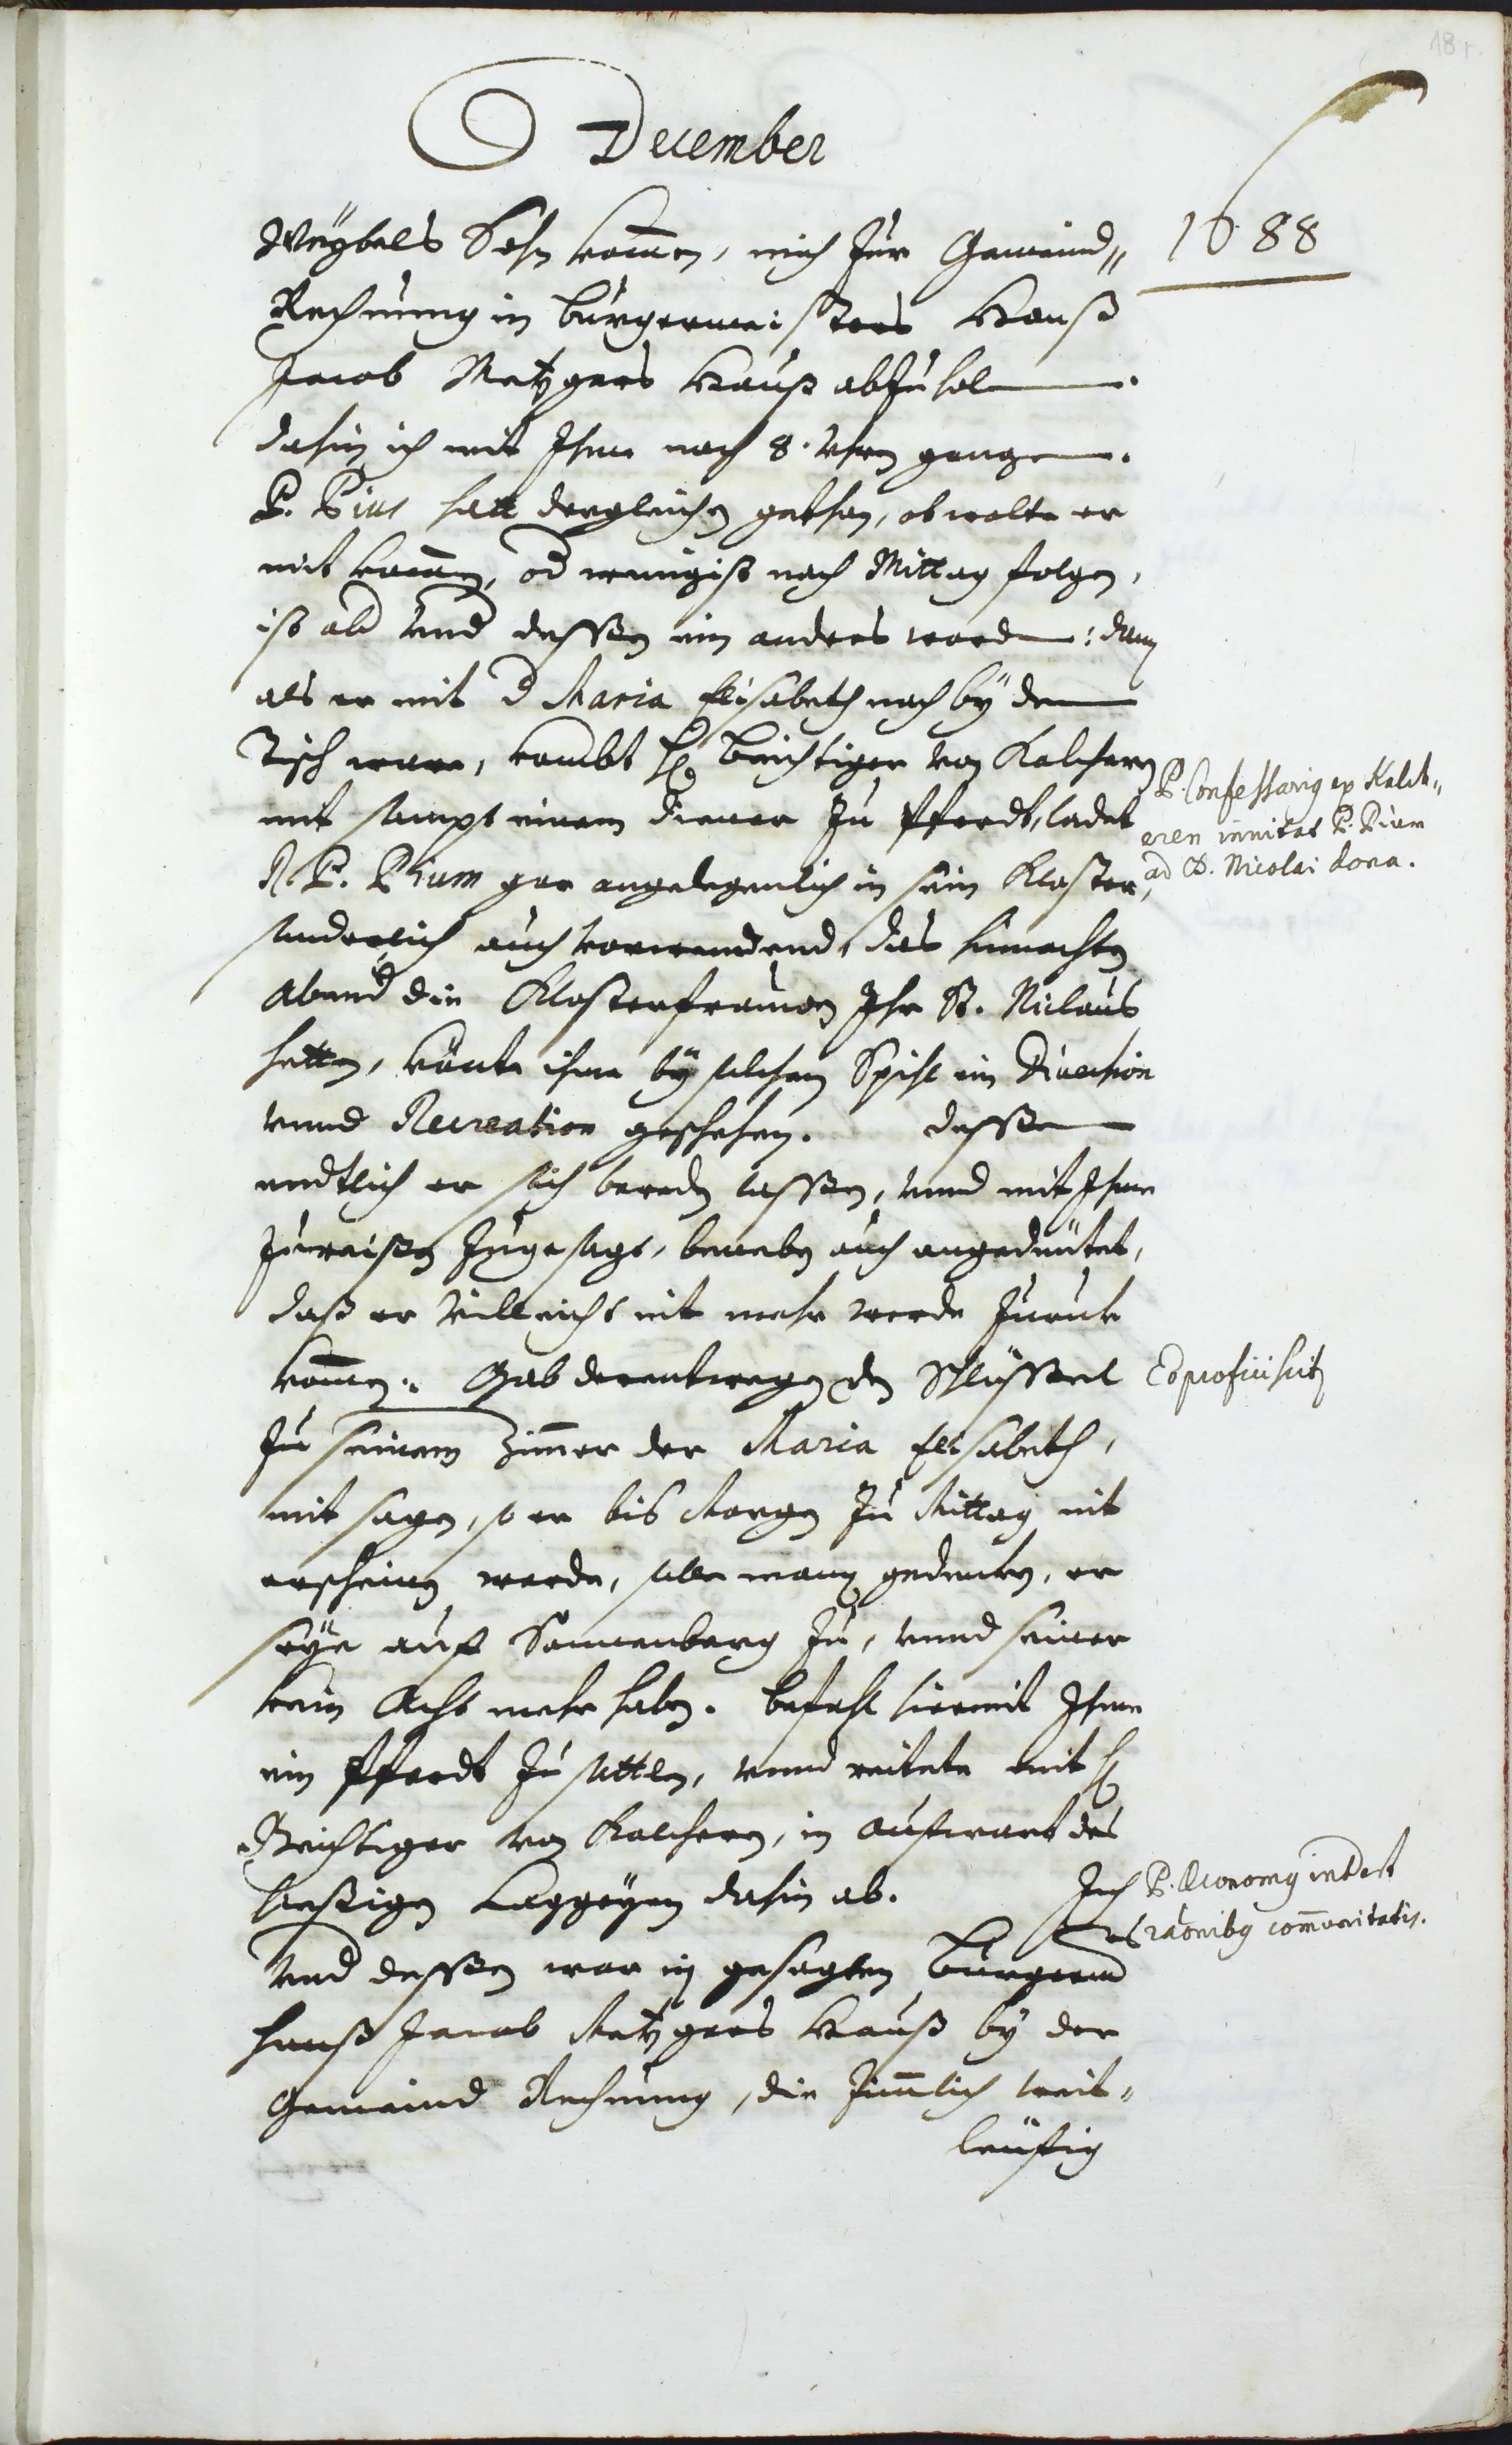 18 r.
December
1688
Weÿbels Sohn kom̄en, mich zur Gemeind„
Rechnung in Burgermeisters Hanß
Jacob Metzgers Hauß abzuholen.
dahin ich mit Ihme nach 8. Uhren gangen.
P. Pius hatt dergleichen gethan, ob wolte er
mit kom̄en, od wenigist nach Mittag folgen,
ist ab Und dessen ein anders worden: dann
als er mit d Maria Elisabeth noch bÿ dem
Tisch ware, kombt H. Beichtiger von Kalcheren
mit sampt einem Diener zu Pferdt, ladet
R. P. Pium gar angelegenlich in sein Kloster,
sonderlich auch vorwendend, das hinachten
Abend die Klosterfrauwen Ihr St. Niclaus
hetten, könte ihme bÿ solchem Spihl ein Divertion
vnnd Recreation geschehen. dessen
endtlich er sich bereden lassen, vnnd mit Ihme
zureisen zugesagt, beneben auch angedeütet,
daß er villeicht nit mehr werde zuruk
kom̄en. Gab derentwegen den Schlüssel
zu seinem Zimmer der Maria Elisabeth,
mit sagen, so er bis Morgen zu Mittag nit
erscheinen werde, solle mann gedenken, er
seÿe auf Sonnenberg zu, vnnd seiner
kein Acht mehr haben. Befahl hiermit Ihme
ein Pferdt zu sattlen, vnnd reitete mit H.
Beichtiger von Kalcheren, in aufwart des
hiesigen Laggeÿen dahin ab. Ich
Und dessen war in gesagten Burgerm
Hanß Jacob Metzgers Hauß bÿ der
Gemeind Rechnung, die zim̄lich weit„
leüfig
P. Confessarig ex Kalch„
eren invitat P. Pium
ad S. Nicolai dona.
Eo proficiscit
P. Œconomg interest
raōnibg com̄unitatis.